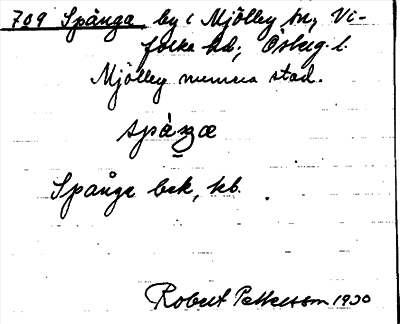 709 Spånga by i Mjölby sn, Vi-
folka hd; Östug. l.
Mjölby numera stad.
spåŋa
Spånga bck, kb.
Robert Pettersson 1930